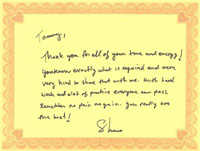 Tommy,
Thank you for all of your time and energy!
You know exactly what is required and were
very kind to share that with me. With hard
work and alot of practice everyone can pass.
Remember no pain no gain. You really are
the best!